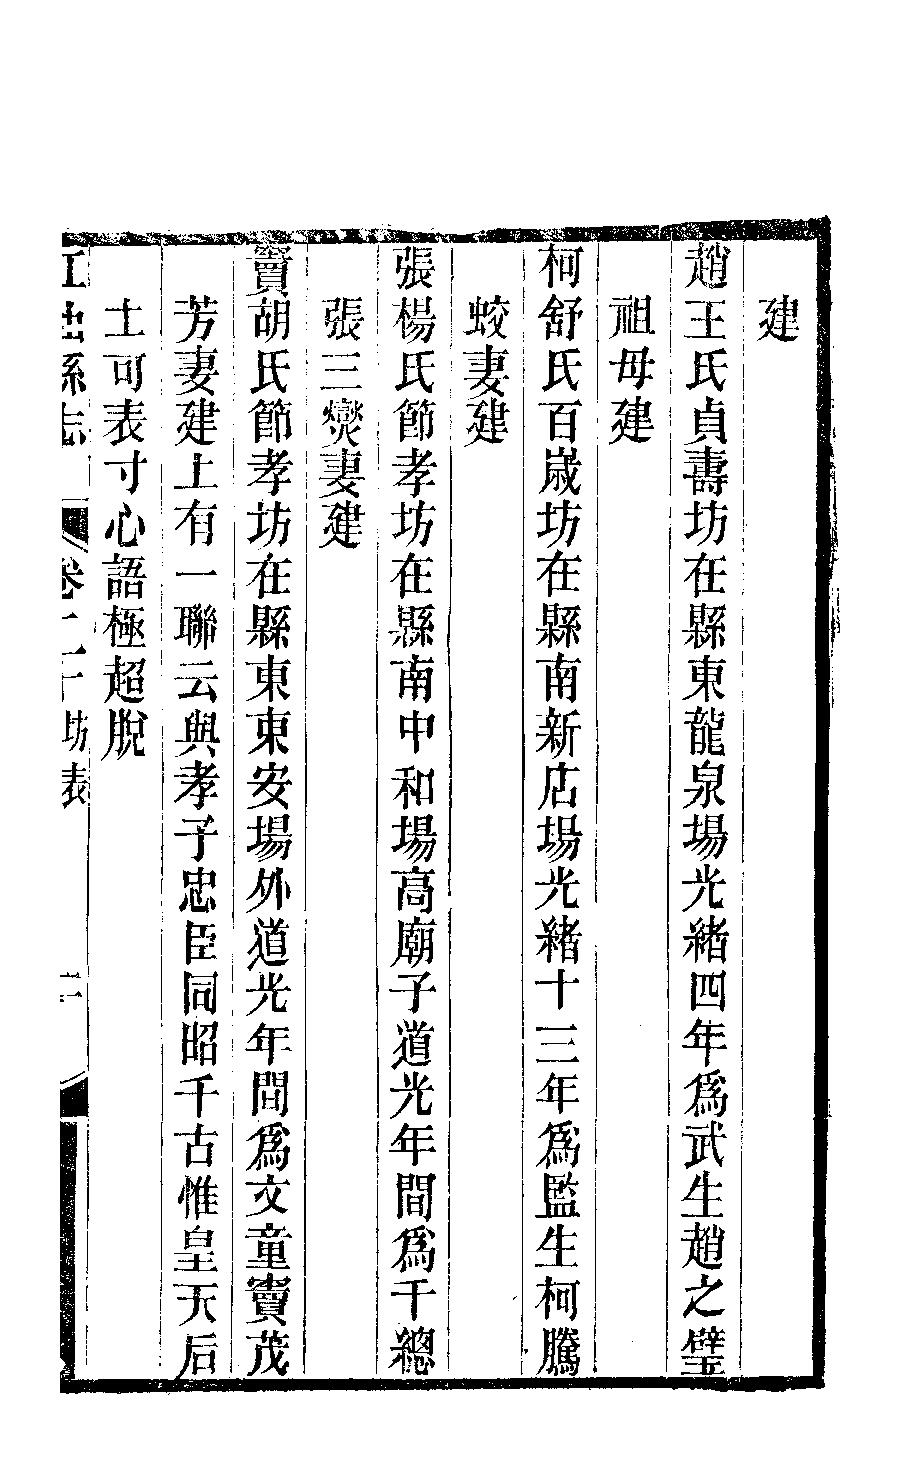 建
趙王氏貞壽坊在縣東龍泉場光緒四年爲武生趙之璧
祖母建
柯舒氏百歲坊在縣南新店場光緒十三年爲監生柯騰
蛟妻建
張楊氏節孝坊在縣南中和場高廟子道光年間爲千總
張三爕妻建
竇胡氏節孝坊在縣東東安場外道光年間爲文童竇茂
芳妻建上有一聯云與孝子忠臣同昭千古惟皇天后
土可表寸心語極超脫
縣志 卷二十 坊表